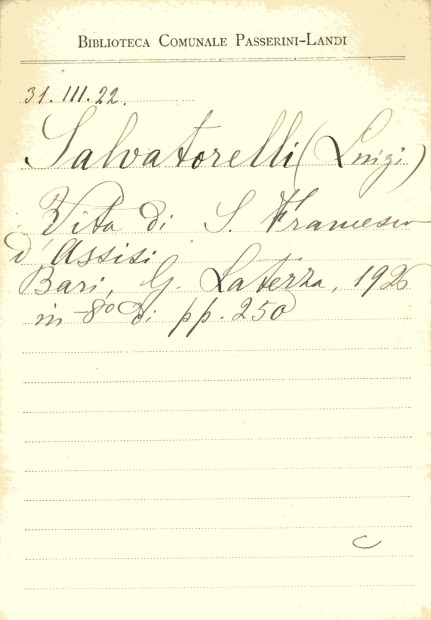 BIBLIOTECA COMUNALE PASSERINI-LANDI
31. III. 22.
Salvatorelli (Luigi)
Vita di S. Francesco
d'Assisi
Bari, G. Laterza, 1926
in-8º di pp. 250
C